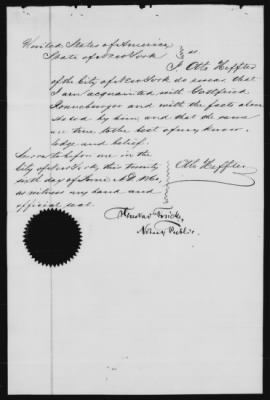 United States of America
State of New York } ss
I, Otto Heffter
of the City of New York do swear that
I am acquainted with Gottfried
Ronneburger and with the facts above
stated by him and that the same
are true to the best of my know
ledge and belief.
Sworn to before me in the
City of New York, this Twenty
sixth day of June A.D. 1860,
as witness my hand and
official seal.
Otto Heffter
Notary Public.